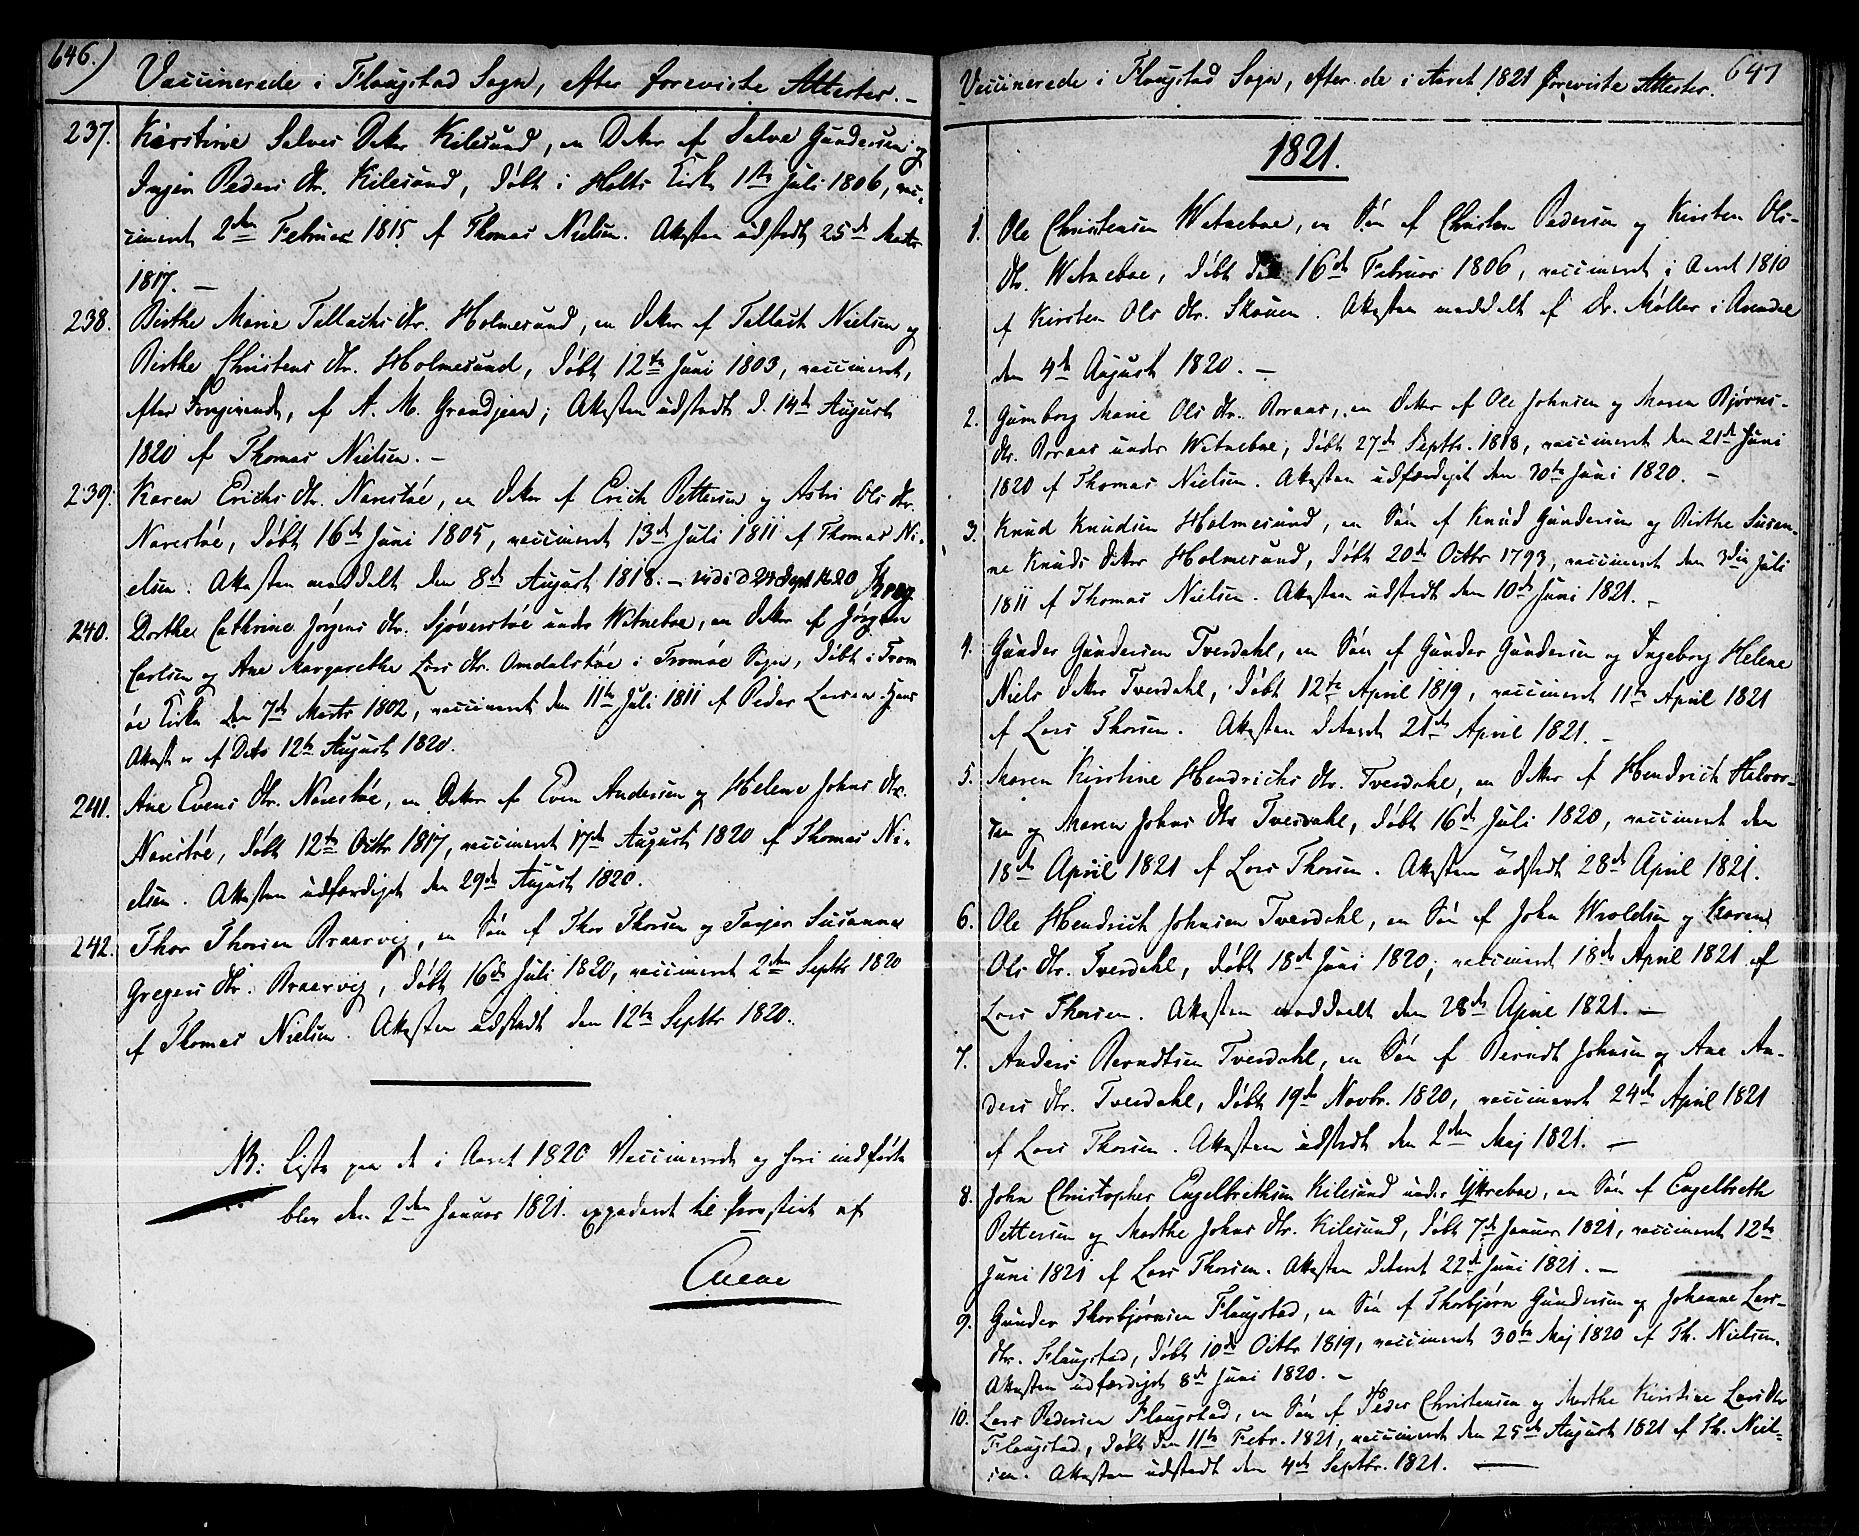 646.)
Vaccinerede i Flaugstad Sogn, efter foreviste Attester. –
237. Kirstine Salves Dater Kilesund, en Dater af Salve Gundersen og
Inger Peders Dtr. Kilesund, døbt i Holts Kirke 1ste Juli 1806, vac-
cineret 2den Februar 1815 af Thomas Nielsen. Attesten udstedt 25de Marts
1817. –
238. Birthe Marie Tallachs Dtr. Holmesund, en Dater af Tallach Nielsen og
Birthe Christens Dtr. Holmesund, døbt 12te Juni 1803, vaccineret,
efter Foregivende, af A. M. Grandjean; Attesten udstedt d. 14de August
1820 af Thomas Nielsen. –
239. Karen Erichs Dtr. Narestøe, en Dater af Erich Pettersen og Astri Ols Dtr.
Narestøe, døbt 16de Juni 1805, vaccineret 13de Juli 1811 af Thomas Ni-
elsen. Attesten meddelt den 8de August 1818. – vidi d
240. Dorthe Cathrine Jørgens Dtr. Sjøverstøe under Watneboe, en Dater af Jørgen
Carlsen og Ane Margarethe Lars Dtr. Omdalstøe i Tromøe Sogn, døbt i Trom
øe Kirke den 7de Marts 1802, vaccineret den 11te Juli 1811 af Peder Larsen
Attest er af Dato 12te August 1820.
241. Ane Evens Dtr. Narestøe, en Dater af Even Andersen og Helene Johns Dtr.
Narestøe, døbt 12te Octbr 1817, vaccineret 17de August 1820 af Thomas Ni-
elsen. Attesten udfærdiget den 29de August 1820.
242. Thor Thorsen Braarvig, en Søn af Thor Thorsen og Tarjer Susanna
Gregers Dtr. Braarvig, døbt 16de Juli 1820, vaccineret 2den Septbr 1820
af Thomas Nielsen. Attesten udstedt den 12te Septbr 1820.
NB: Liste paa de i Aaret 1820 Vaccinerede og heri indførte
blev den 2den Januar 1821 expederet til Provstiet af
Aaene
647
Vaccinerede i Flaugstad Sogn, efter de i Aaret 1821 foreviste Attester.
1821.
1. Ole Christensen Watneboe, en Søn af Christen Pedersen og Kirsten Ols-
Dtr. Watneboe, døbt den 16de Februar 1806, vaccineret i Aaret 1810
af Kirsten Ols Dtr. Skouen. Attesten meddelt af Dr. Møller i Arendal
den 4de August 1820. –
2. Gumborg Marie Ols Dtr. Roraas, en Dater af Ole Johnsen og Maren Bjørns-
Dtr. Roraas under Watneboe, døbt 27de Septbr. 1818, vaccineret den 21de Juni
1820 af Thomas Nielsen. Attesten udfærdiget den 30te Juni 1820. –
3. Knud Knudsen Holmesund, en Søn af Knud Gundersen og Birthe Susan-
ne Knuds Dater Holmesund, døbt 20de Octbr 1793, vaccineret den 3die Juli
1811 af Thomas Nielsen. Attesten udstedt den 10de Juni 1821. –
4. Gunder Gundersen Tverdahl, en Søn af Gunder Gundersen og Ingeborg Helene
Niels Dater Tverdahl, døbt 12te April 1819, vaccineret 11te April 1821
af Lars Thorsen. Attesten dateret 21de April 1821. –
5. Maren Kirstine Hendrichs Dtr. Tverdahl, en Dater af Hendrich Halvor-
sen og Maren Johns Dtr Tverdahl, døbt 16de Juli 1820, vaccineret den
18de April 1821 af Lars Thorsen. Attesten udstedt 28de April 1821.
6. Ole Hendrich Johnsen Tverdahl, en Søn af John Wroldsen og Karen
Ols Dtr. Tverdahl, døbt 18de Juni 1820, vaccineret 18de April 1821 af
Lars Thorsen. Attesten meddeelt den 28de April 1821. –
7. Anders Berndtsen Tverdahl, en Søn af Berndt Johnsen og Ane An-
ders Dtr. Tverdahl, døbt 19de Novbr. 1820, vaccineret 24de April 1821
af Lars Thorsen. Attesten udstedt den 2den Maj 1821. –
8. John Christopher Engelbrethsen Kilesund under Yttreboe, en Søn af Engelbreth
Pettersen og Marthe Johns Dtr. Kilesund, døbt 7de Januar 1821, vaccineret 12te
Juni 1821 af Lars Thorsen. Attesten dateret 22de Juni 1821. –
9. Gunder Thorbjørnsen Flaugstad, en Søn af Thorbjørn Gundersen og Johanne Lars-
Dtr. Flaugstad, døbt 10de Octbr 1819, vaccineret 30te Maj 1820 af Th. Nielsen.
Attesten udfærdiget 8de Juni 1820. –
10. Lars Pedersen Flaugstad, en Søn af Peder Christensen og Marthe Kirstine Lars Dtr
Flaugstad, døbt den 11te Febr. 1821, vaccineret den 25de August 1821 af Th. Niel-
sen. Attesten udstedt den 4de Septbr. 1821. –